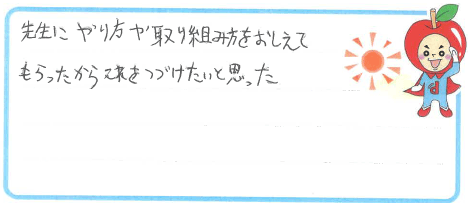 先生に やり方や取り組み方をおしえて
もらったからこれをつづけたいと思った